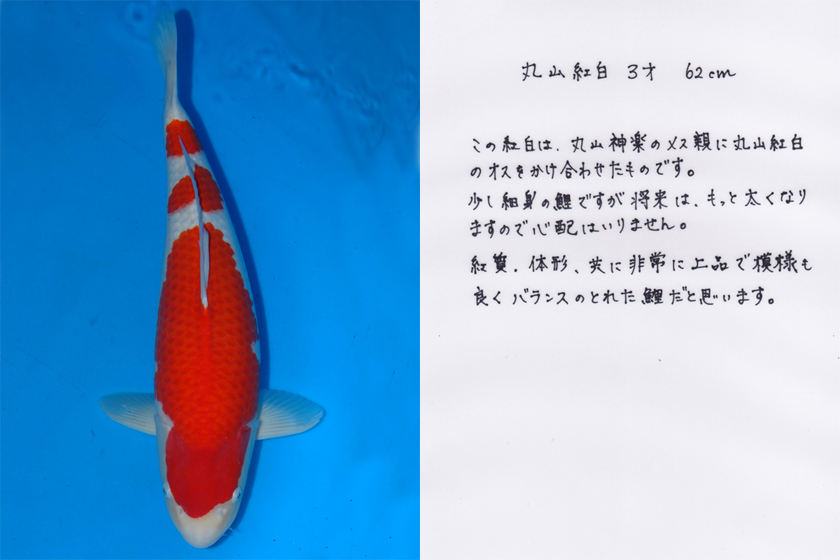 丸山紅白 3才 62cm
この紅白は、丸山神楽のメス親に丸山紅白
のオスをかけ合わせたものです。
少し細身の鯉ですが将来は、もっと太くなり
ますので心配はいりません。
紅質、体形、共に非常に上品で模様も
良くバランスのとれた鯉だと思います。